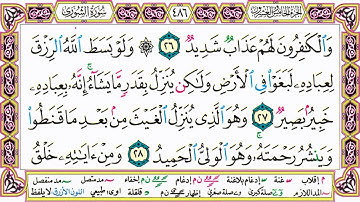 سُورَةُ الشُّورَىٰ ٤٨٦
وَالْكَٰفِرُونَ لَهُمْ عَذَابٌ شَدِيدٌ ٢٦ وَلَوْ بَسَطَ اللَّهُ الرِّزْقَ
لِعِبَادِهِ لَبَغَوْا فِي الْأَرْضِ وَلَٰكِن يُنَزِّلُ بِقَدَرٍ مَّا يَشَاءُ إِنَّهُ بِعِبَادِهِ
خَبِيرٌ بَصِيرٌ ٢٧ وَهُوَ الَّذِي يُنَزِّلُ الْغَيْثَ مِن بَعْدِ مَا قَنَطُوا
وَيَنشُرُ رَحْمَتَهُ وَهُوَ الْوَلِيُّ الْحَمِيدُ ٢٨ وَمِنْ ءَايَٰتِهِ خَلْقُ